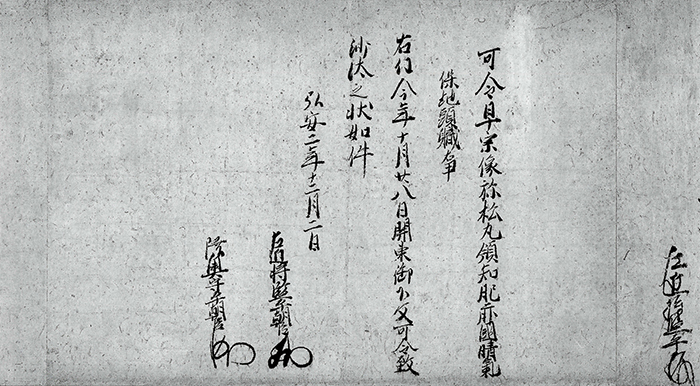 可令早宗像弥松丸領知肥前國晴氣
保地頭職事
右任今年十月廿八日關東御下文可令致
沙汰之状如件
弘安二年十二月二日
左近将監平朝臣
陸奥守平朝臣
左近将監平